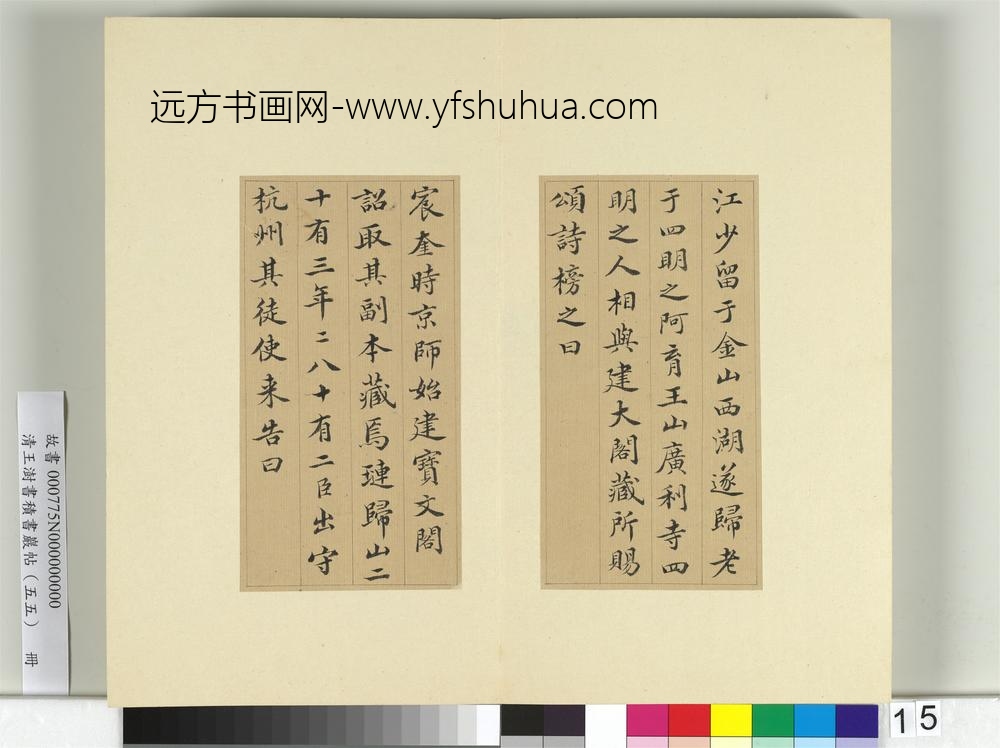 远方书画网-www.yfshuhua.com
江少留于金山西湖遂歸老
于四明之阿育王山廣利寺四
明之人相與建大閣藏所賜
頌詩榜之曰
宸奎時京師始建寶文閣
詔取其副本藏焉璉歸山二
十有三年二八十有二臣出守
杭州其徒使来告曰
故書 000775N000000000
清王澍書積書巖帖（五五） 冊
15